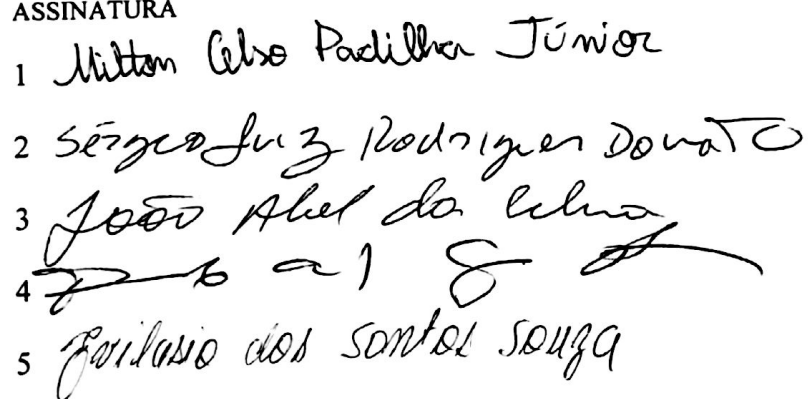 ASSINATURA
1 Milton Celso Padilha Júnior
2 Sérgio Luiz Rodrigues Donato
3 João Abel da Silva
4
5 Evilasio dos Santos Souza